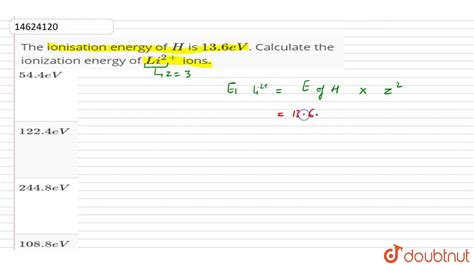 14624120
The ionisation energy of H is 13.6eV. Calculate the
ionization energy of Li²⁺ ions.
Li z = 3
54.4eV
E₁ Li²⁺ = E of H × z²
= 13.6.
122.4eV
244.8eV
108.8eV
doubtnut